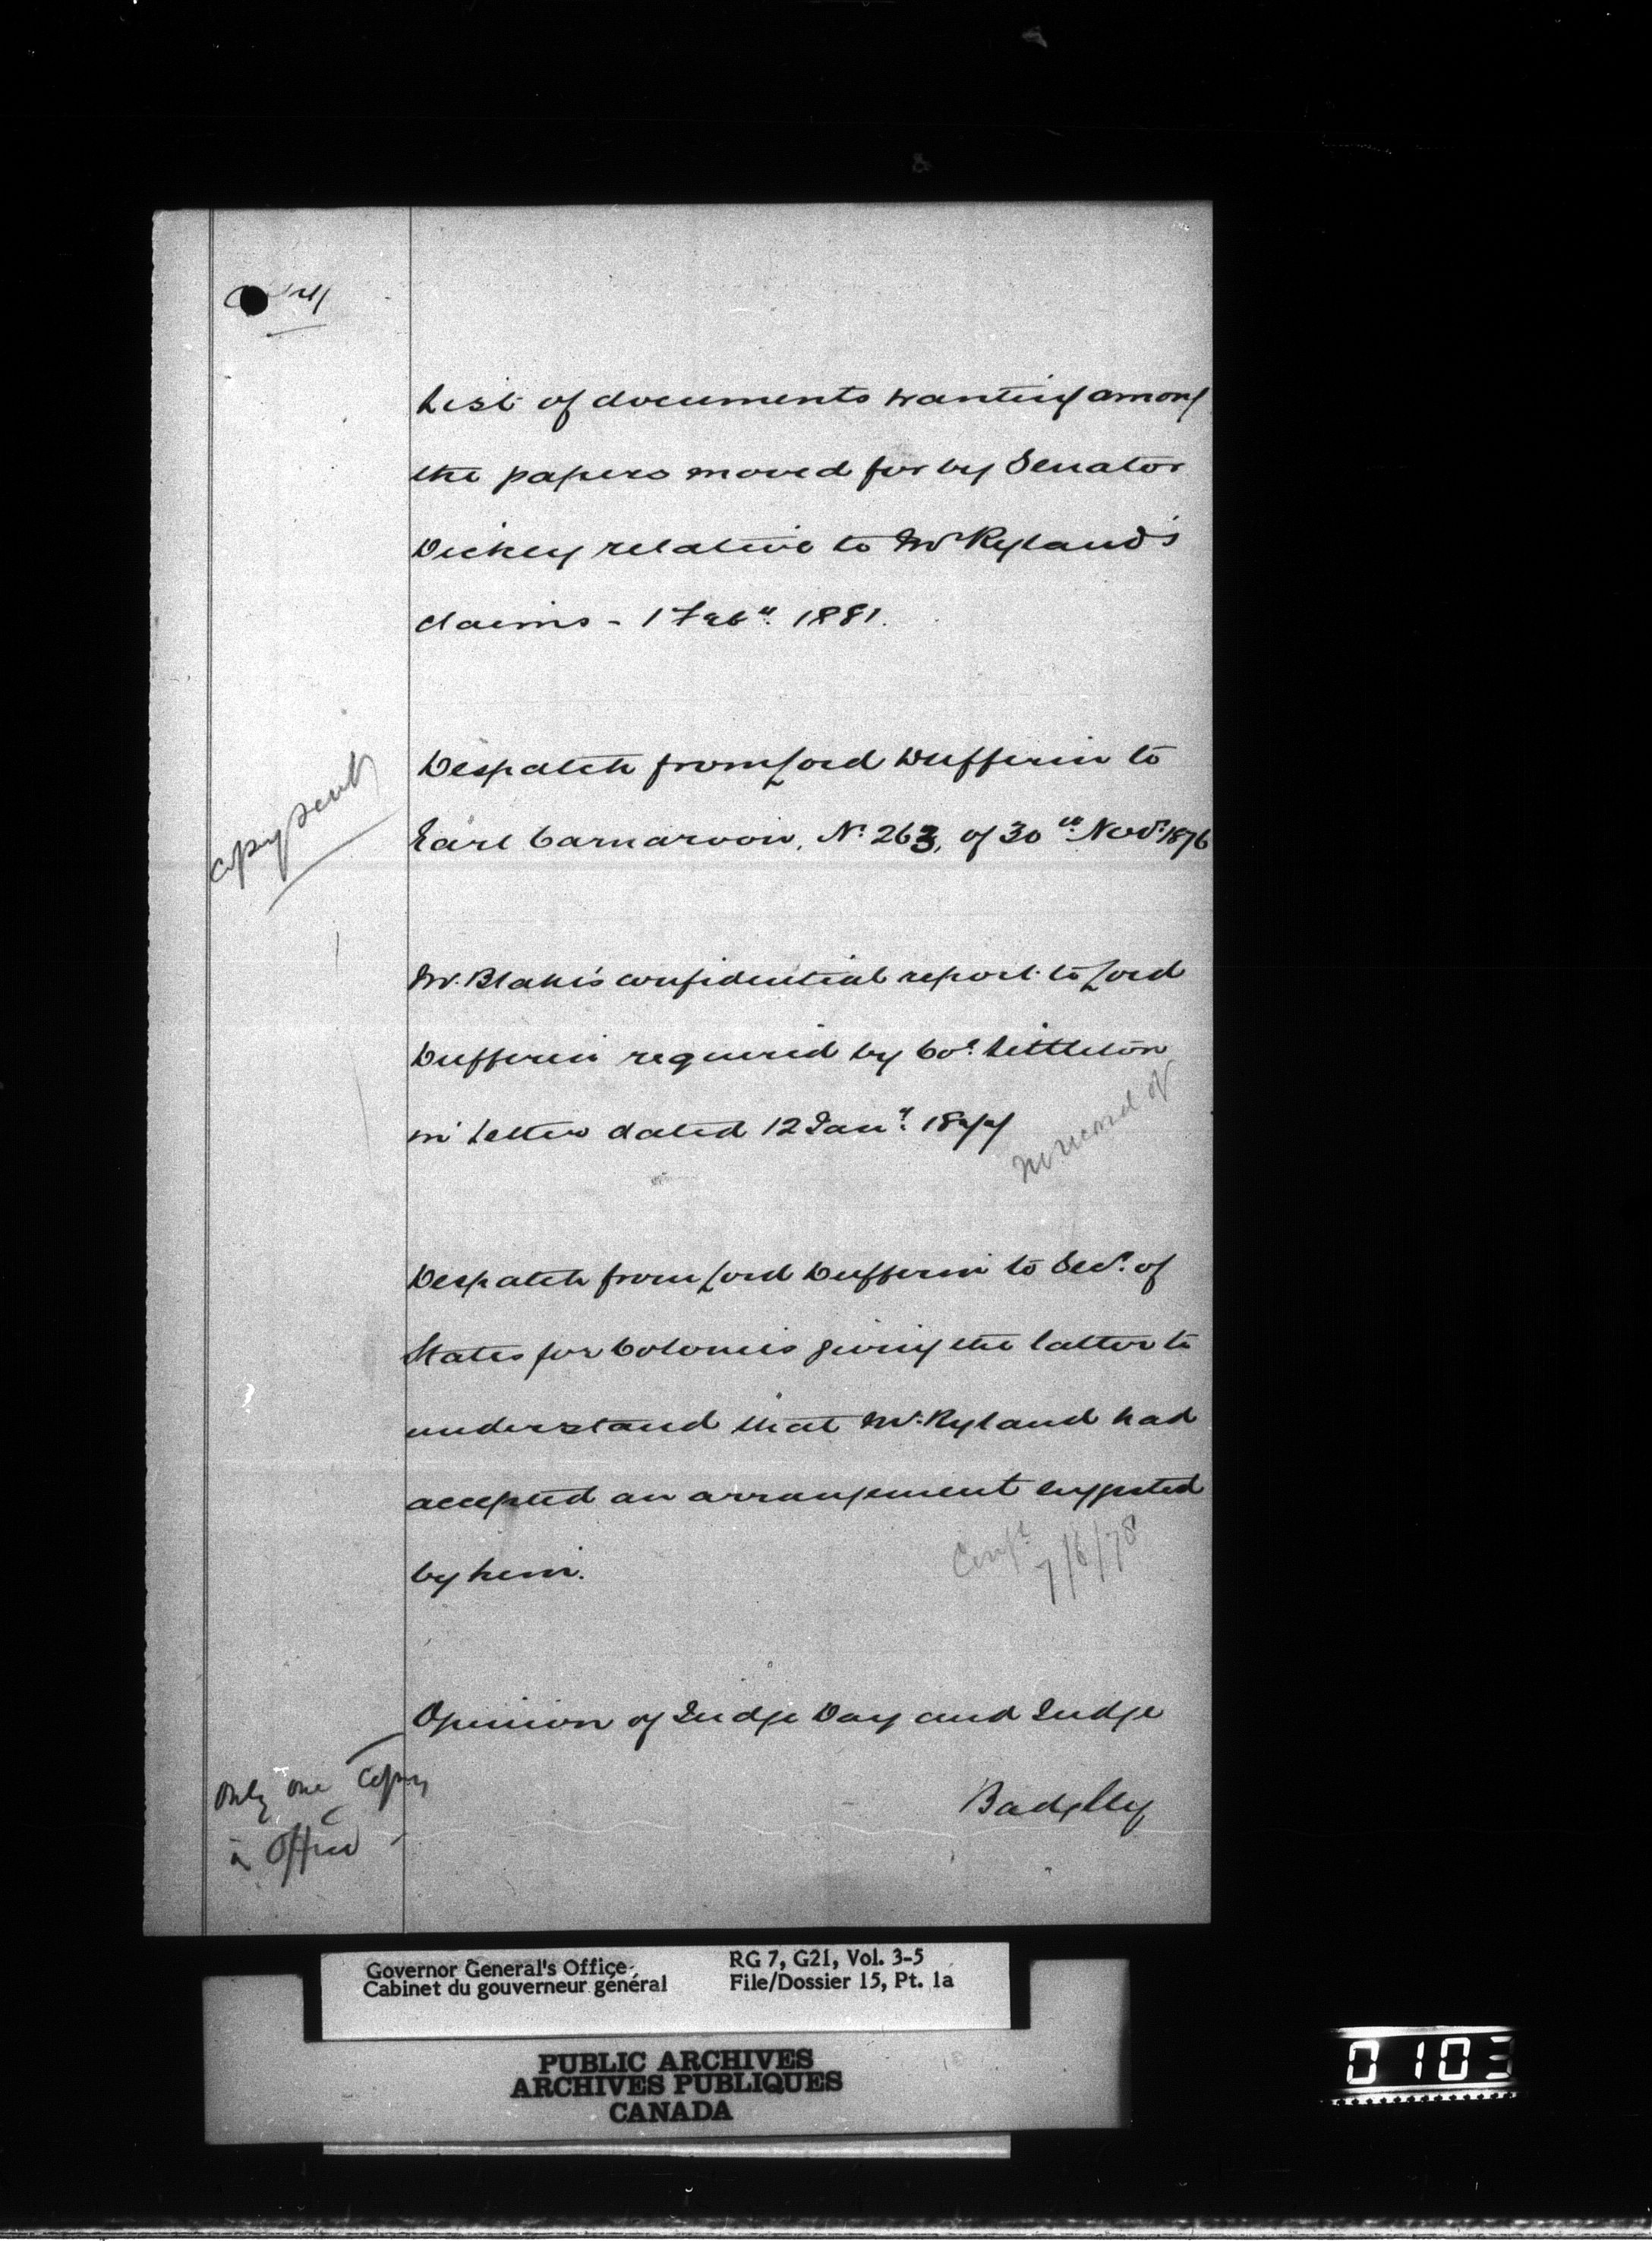 Copy
List of documents wanting among
the papers moved for by Senator
Dickey relative to Mr Ryland's
claims - 1 Feby. 1881.
Copy sent
Despatch from Lord Dufferin to
Earl Carnarvon, No. 263, of 30th Novr. 1876
Mr. Blake's confidential report to Lord
Dufferin required by Col. Littleton
in letter dated 12 Jany. 1877
no record of
Despatch from Lord Dufferin to Secy. of
States for Colonies giving the latter to
understand that Mr. Ryland had
accepted an arrangement suggested
by him.
Conf.l 7/6/78
Opinion of Judge Day and Judge
Badgley
Only one copy
in Office
Governor General's Office
Cabinet du gouverneur général
RG 7, G21, Vol. 3-5
File/Dossier 15, Pt. 1a
PUBLIC ARCHIVES
ARCHIVES PUBLIQUES
CANADA
0103